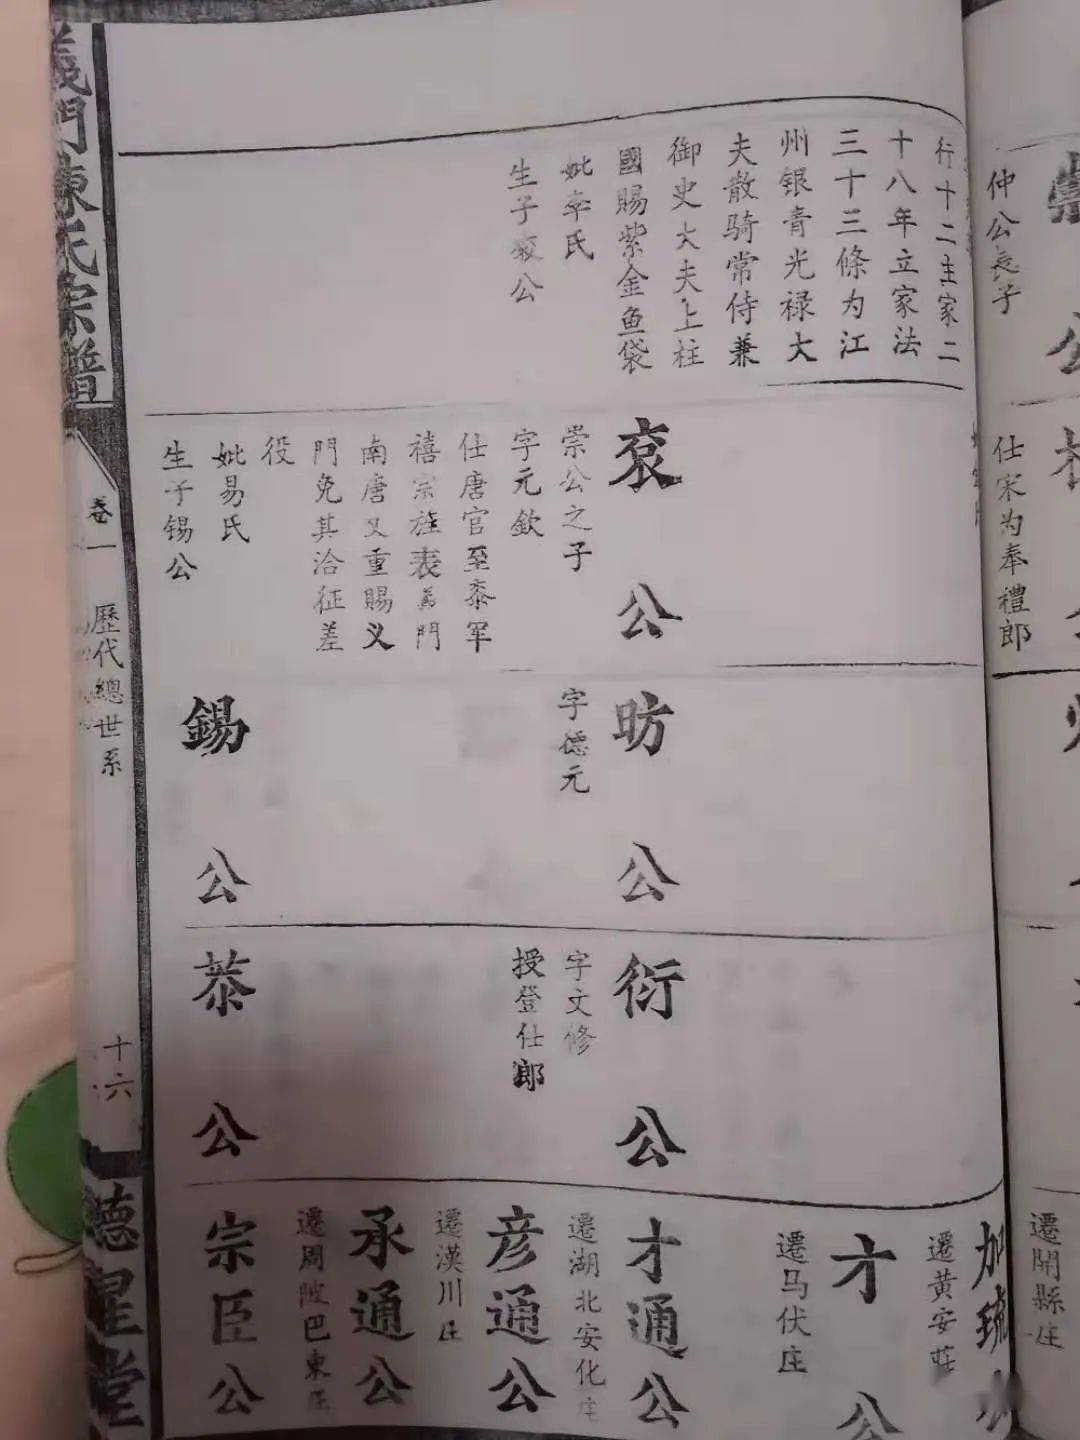 崇
公
仲公長子
仕宋为奉禮郎
遷開縣庄
行十二主家二
十八年立家法
三十三條为江
州银青光禄大
夫散骑常侍兼
御史大夫上柱
國賜紫金鱼袋
妣李氏
生子衮公
衮公
崇公之子
字元欽
仕唐官至泰军
禧宗旌表義門
南唐又重賜义
門免其洽征差
役
妣易氏
生子锡公
昉公
字德元
錫公
衍公
字文修
授登仕郎
恭公
加琉公
遷黄安莊
才公
遷马伏庄
才通公
遷湖北安化庄
彦通公
遷漢川庄
承通公
遷周陂巴東庄
宗臣公
義門陳氏宗譜
卷一
歷代總世系
十六
德星堂